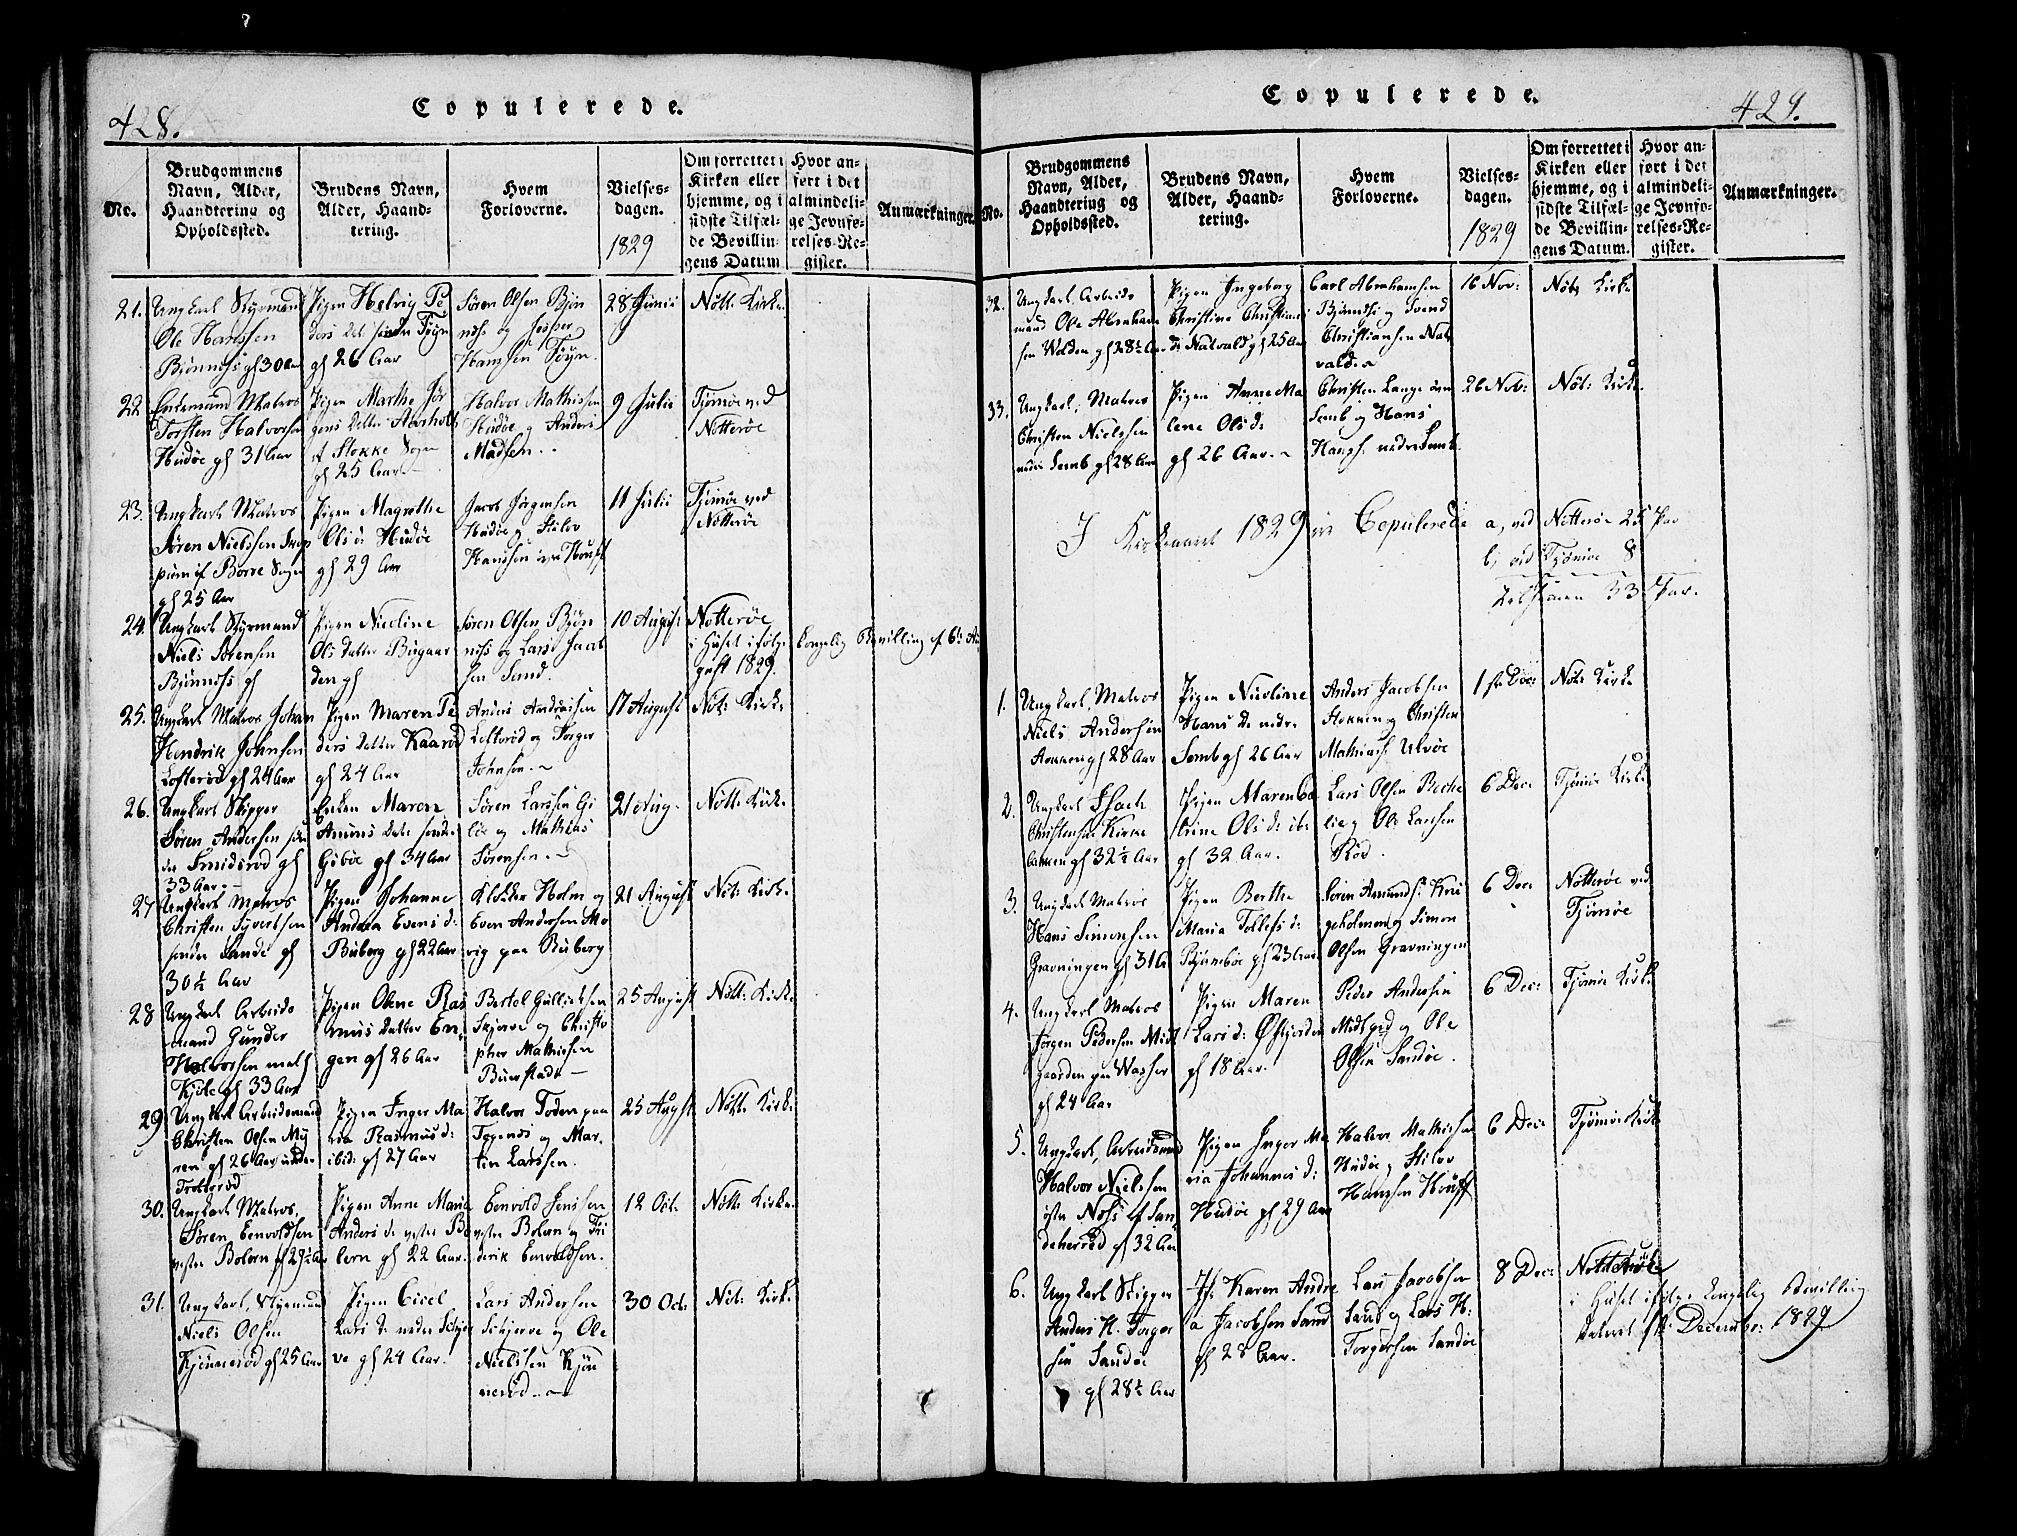 428.
Copulerede.
No.
Brudgommens Navn, Alder, Haandtering og Opholdssted.
Brudens Navn, Alder, Haandtering.
Hvem Forloverne.
Vielsesdagen.
1829
Om forrettet i Kirken eller hjemme, og i sidste Tilfælde Bevillingens Datum
Hvor anført i det almindelige Jevnførelses-Register.
Anmærkninger.
21. Ungkarl Styrmand
Ole Hanssen
gl 30 Aar
Pigen Helvig Pe
ders Dat
gl 26 Aar
Søren Olsen
og Jesper
Hanssen Føyn.
28 Junii
Nøtt: Kirke
22
Enkemand Matros
Torsten Halvorsen
Hudøe gl 31 Aar
Pigen Marthe Jør
gens Datter
af Stokke Sogn
gl 25 Aar
Halvor Mathissen
Hudøe og Anders
Madsen.
9 Julii
Tjømøe ved
Nøtterøe
23.
Ungkarl Matros
Søren Nielssen
af Borre Sogn
gl 25 Aar
Pigen Magrethe
Ols d: Hudøe
gl 29 Aar
Jacob Jørgensen
Hudøe og
Hanssen
11 Julii
Tjømøe ved
Nøtterøe
24.
Ungkarl Styrmand
Niels Sørensen
gl
Pigen Nicoline
Ols datter Bugaar
den gl
Søren Olsen
og Lars Jacob
sen Sand.
10 August
Nøtterøe
i Huset ifølge Kongelig Bevilling af 6te Au
gust 1829.
25.
Ungkarl Matros Johan
Hendrik Johnsen
Lofterød gl 24 Aar
Pigen Maren Pe
ders Datter Kaarød
gl 24 Aar
Anders Andreasen
og Torger
Johnsen.
17 August
Nøt: Kirke
26.
Ungkarl Skipper
Søren Andersen søn
dre Smidsrød gl
33 Aar.
Enken Maren
Amuns Dater søndre
gl 34 Aar
Søren Larssen Gi
lie og Mathias
Sørensen.
21 Aug.
Nøtt: Kirke
27
Ungkarl Matros
Christen Syvertsen
søndre Sande gl
30½ Aar
Pigen Johanne
Andrea Evens d:
Buberg gl 22 Aar
Klokker Holm og
Even Andersen Mo
vig paa Buberg
21 August
Nøt: Kirke
28
Ungkarl Arbeids
mand Gunder
Halvorsen
gl 33 Aar
Pigen Olene Ras
mus Datter En
gen gl 26 Aar
Bertol Gullicksen
Skjerve og Christo
pher Mathissen
25 August
Nøtt: Kirke
29
Ungkarl Arbeidsmand
Christen Olsen My
ren gl 26 Aar under
Pigen Inger Ma
ria Rasmus d:
ibid: gl 27 Aar
Halvor Toden paa
og Mar
tin Larssen.
25 Augst
Nøtt: Kirke
30.
Ungkarl Matros,
Søren Enevoldsen
vestre Bolern gl 29½ Aar
Pigen Anne Maria
Anders d: vestre Bo
lern gl 22 Aar.
Enevold Jenssen
vestre Bolern og Fri
derik Enevoldsen.
12 Oct.
Nøtt: Kirke
31.
Ungkarl, Styrmand
Niels Olsen
Kjønnerød gl 25 Aar
Pigen Cicel
Lars d: nedre Skjer
ve gl 24 Aar.
Lars Andersen
Skjerve og Ole
Nielssen Kjøn
nerød.
30 Oct.
Nøt: Kirke
429.
Copulerede.
No.
Brudgommens Navn, Alder, Haandtering og Opholdssted.
Brudens Navn, Alder, Haandtering.
Hvem Forloverne.
Vielsesdagen.
1829
Om forrettet i Kirken eller hjemme, og i sidste Tilfælde Bevillingens Datum.
Hvor anført i det almindelige Jevnførelses-Register.
Anmærkninger.
32.
Ungkarl Arbeids
mand Ole Abraham
sen Wolden gl 28½ Aar
Pigen Ingeborg
Christine Christians
d: Natvald gl 25 Aar
Carl Abrahamsen
og Svend
Christiansen Nat
vald.
16 Nov:
Nøt: Kirke
33.
Ungkarl, Matros
Christen Nielssen
nedre Semb gl 28 Aar
Pigen Anne Ma
lene Ols d:
gl 26 Aar.
Christen Lange øvre
Semb og Hans
Hans: nedre Semb
26 Nov:
Nøt: Kirke
I Kirkeaaret 1829 ere Copulerede a, ved Nøtterøe 25 Par
b, ved Tjømøe 8
Tilsammen 33 Par.
1.
Ungkarl, Matros
Niels Andersen
gl 28 Aar
Pigen Nicoline
Hans D: nedre
Semb gl 26 Aar
Anders Jacobsen
og Christen
Mathias: Ulvøe
1ste Dec:
Nøt: Kirke
2.
Ungkarl Isach
Christensen Kirke
bakken gl 32½ Aar
Pigen Maren Ca
trine Ols d: ibi
gl 32 Aar.
Lars Olsen
og Ole Larssen
Rød.
6 Dec:
Tjømøe Kirke
3.
Ungkarl Matros
Hans Simonsen
Gravningen gl 31 A
Pigen Berthe
Maria Tollefs d:
gl 23 Aar
Søren Amunds: Kru
geholmen og Simon
Olsen Gravningen
6 Dec:
Nøtterøe ved
Tjømøe
4.
Ungkarl Matros
Jørgen Pedersen Midt
gaarden paa Wasser
gl 24 Aar
Pigen Maren
Lars d: Østjorden
gl 18 Aar.
Peder Andersen
og Ole
Olsen Sandøe.
6 Dec:
Tjømøe Kirke
5.
Ungkarl, Arbeidsmand
Halvor Nielssen
østre Nøss af San
deherred gl 32 Aar
Pigen Inger Ma
ria Johannes d:
Hudøe gl 29 Aar
Halvor Mathissen
Hudøe og
Hanssen
6 Dec:
Tjømøe Kirke
6.
Ungkarl Skipper
Anders H. Torger
sen Sandøe
gl 28½ Aar
P: Karen Andre
a Jacobsen Sand
gl 28 Aar.
Lars Jacobsen
Sand og Lars H:
Torgersen Sandøe
8 Dec:
Nøtterøe
i Huset ifølge Kongelig Bevilling
dateret December: 1829